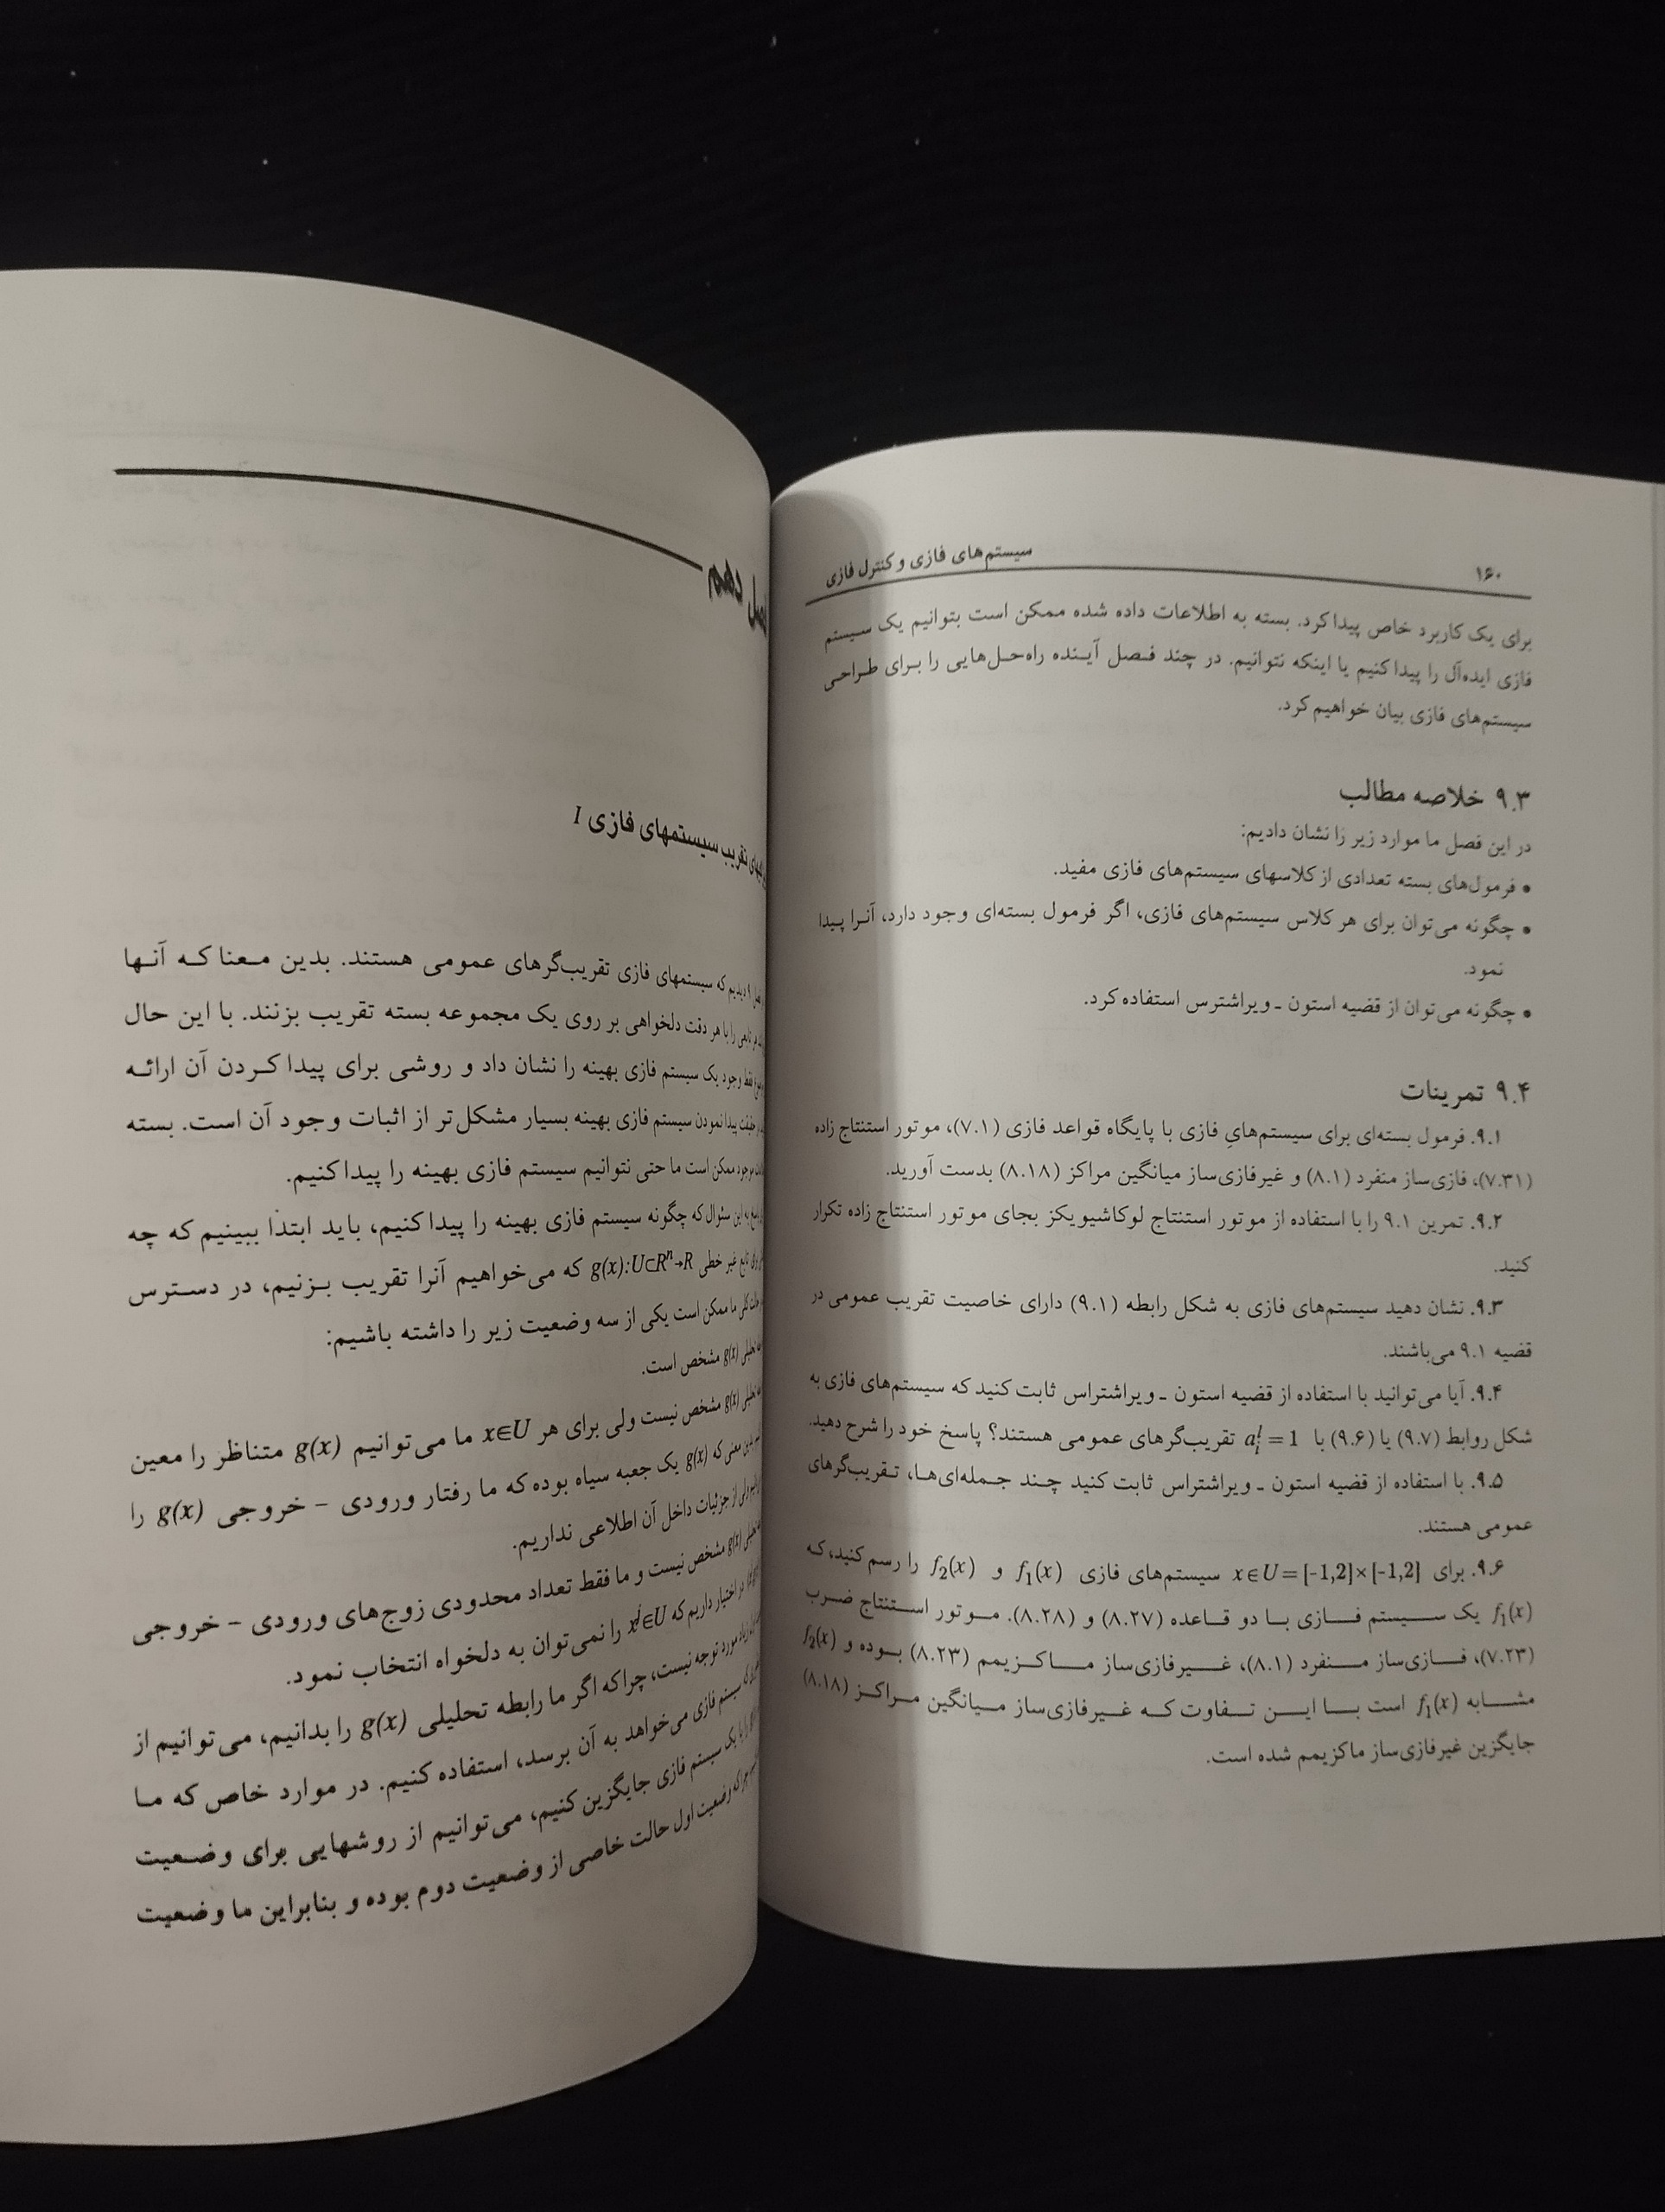 ۱۶۰
سیستم‌های فازی و کنترل فازی
برای یک کاربرد خاص پیدا کرد. بسته به اطلاعات داده شده ممکن است بتوانیم یک سیستم
فازی ایده‌آل را پیدا کنیم یا اینکه نتوانیم. در چند فصل آینده راه‌حل‌هایی را برای طراحی
سیستم‌های فازی بیان خواهیم کرد.
۹.۳ خلاصه مطالب
در این فصل ما موارد زیر را نشان دادیم:
• فرمول‌های بسته تعدادی از کلاسهای سیستم‌های فازی مفید.
• چگونه می‌توان برای هر کلاس سیستم‌های فازی، اگر فرمول بسته‌ای وجود دارد، آنرا پیدا
نمود.
• چگونه می‌توان از قضیه استون ـ ویراشترس استفاده کرد.
۹.۴ تمرینات
۹.۱. فرمول بسته‌ای برای سیستم‌های فازی با پایگاه قواعد فازی (۷.۱)، موتور استنتاج زاده
(۷.۳۱)، فازی‌ساز منفرد (۸.۱) و غیرفازی‌ساز میانگین مراکز (۸.۱۸) بدست آورید.
۹.۲. تمرین ۹.۱ را با استفاده از موتور استنتاج لوکاشیویکز بجای موتور استنتاج زاده تکرار
کنید.
۹.۳. نشان دهید سیستم‌های فازی به شکل رابطه (۹.۱) دارای خاصیت تقریب عمومی در
قضیه ۹.۱ می‌باشند.
۹.۴. آیا می‌توانید با استفاده از قضیه استون ـ ویراشتراس ثابت کنید که سیستم‌های فازی به
شکل روابط (۹.۷) یا (۹.۶) با $a_i^l = 1$ تقریب‌گرهای عمومی هستند؟ پاسخ خود را شرح دهید.
۹.۵. با استفاده از قضیه استون ـ ویراشتراس ثابت کنید چند جمله‌ای‌ها، تقریب‌گرهای
عمومی هستند.
۹.۶. برای x∈U=[-1,2]×[-1,2] سیستم‌های فازی f₁(x) و f₂(x) را رسم کنید، که
f₁(x) یک سیستم فازی با دو قاعده (۸.۲۷) و (۸.۲۸). موتور استنتاج ضرب
(۷.۲۳)، فازی‌ساز منفرد (۸.۱)، غیرفازی‌ساز ماکزیمم (۸.۲۳) بوده و f₂(x)
مشابه f₁(x) است با این تفاوت که غیرفازی‌ساز میانگین مراکز (۸.۱۸)
جایگزین غیرفازی‌ساز ماکزیمم شده است.
دهم
تقریب سیستمهای فازی I
۹ دیدیم که سیستمهای فازی تقریب‌گرهای عمومی هستند. بدین معنا که آنها
را با هر دقت دلخواهی بر روی یک مجموعه بسته تقریب بزنند. با این حال
فقط وجود یک سیستم فازی بهینه را نشان داد و روشی برای پیدا کردن آن ارائه
پیدا نمودن سیستم فازی بهینه بسیار مشکل‌تر از اثبات وجود آن است. بسته
موجود ممکن است ما حتی نتوانیم سیستم فازی بهینه را پیدا کنیم.
این سئوال که چگونه سیستم فازی بهینه را پیدا کنیم، باید ابتدا ببینیم که چه
تابع غیر خطی g(x):U⊂Rⁿ→R که می‌خواهیم آنرا تقریب بزنیم، در دسترس
ما ممکن است یکی از سه وضعیت زیر را داشته باشیم:
تحلیلی g(x) مشخص است.
تحلیلی g(x) مشخص نیست ولی برای هر x∈U ما می‌توانیم g(x) متناظر را معین
معنی که g(x) یک جعبه سیاه بوده که ما رفتار ورودی - خروجی g(x) را
ولی از جزئیات داخل آن اطلاعی نداریم.
تحلیلی g(x) مشخص نیست و ما فقط تعداد محدودی زوج‌های ورودی - خروجی
در اختیار داریم که xʲ∈U را نمی‌توان به دلخواه انتخاب نمود.
مورد توجه نیست، چراکه اگر ما رابطه تحلیلی g(x) را بدانیم، می‌توانیم از
که سیستم فازی می‌خواهد به آن برسد، استفاده کنیم. در موارد خاص که ما
را با یک سیستم فازی جایگزین کنیم، می‌توانیم از روشهایی برای وضعیت
چراکه وضعیت اول حالت خاصی از وضعیت دوم بوده و بنابراین ما وضعیت